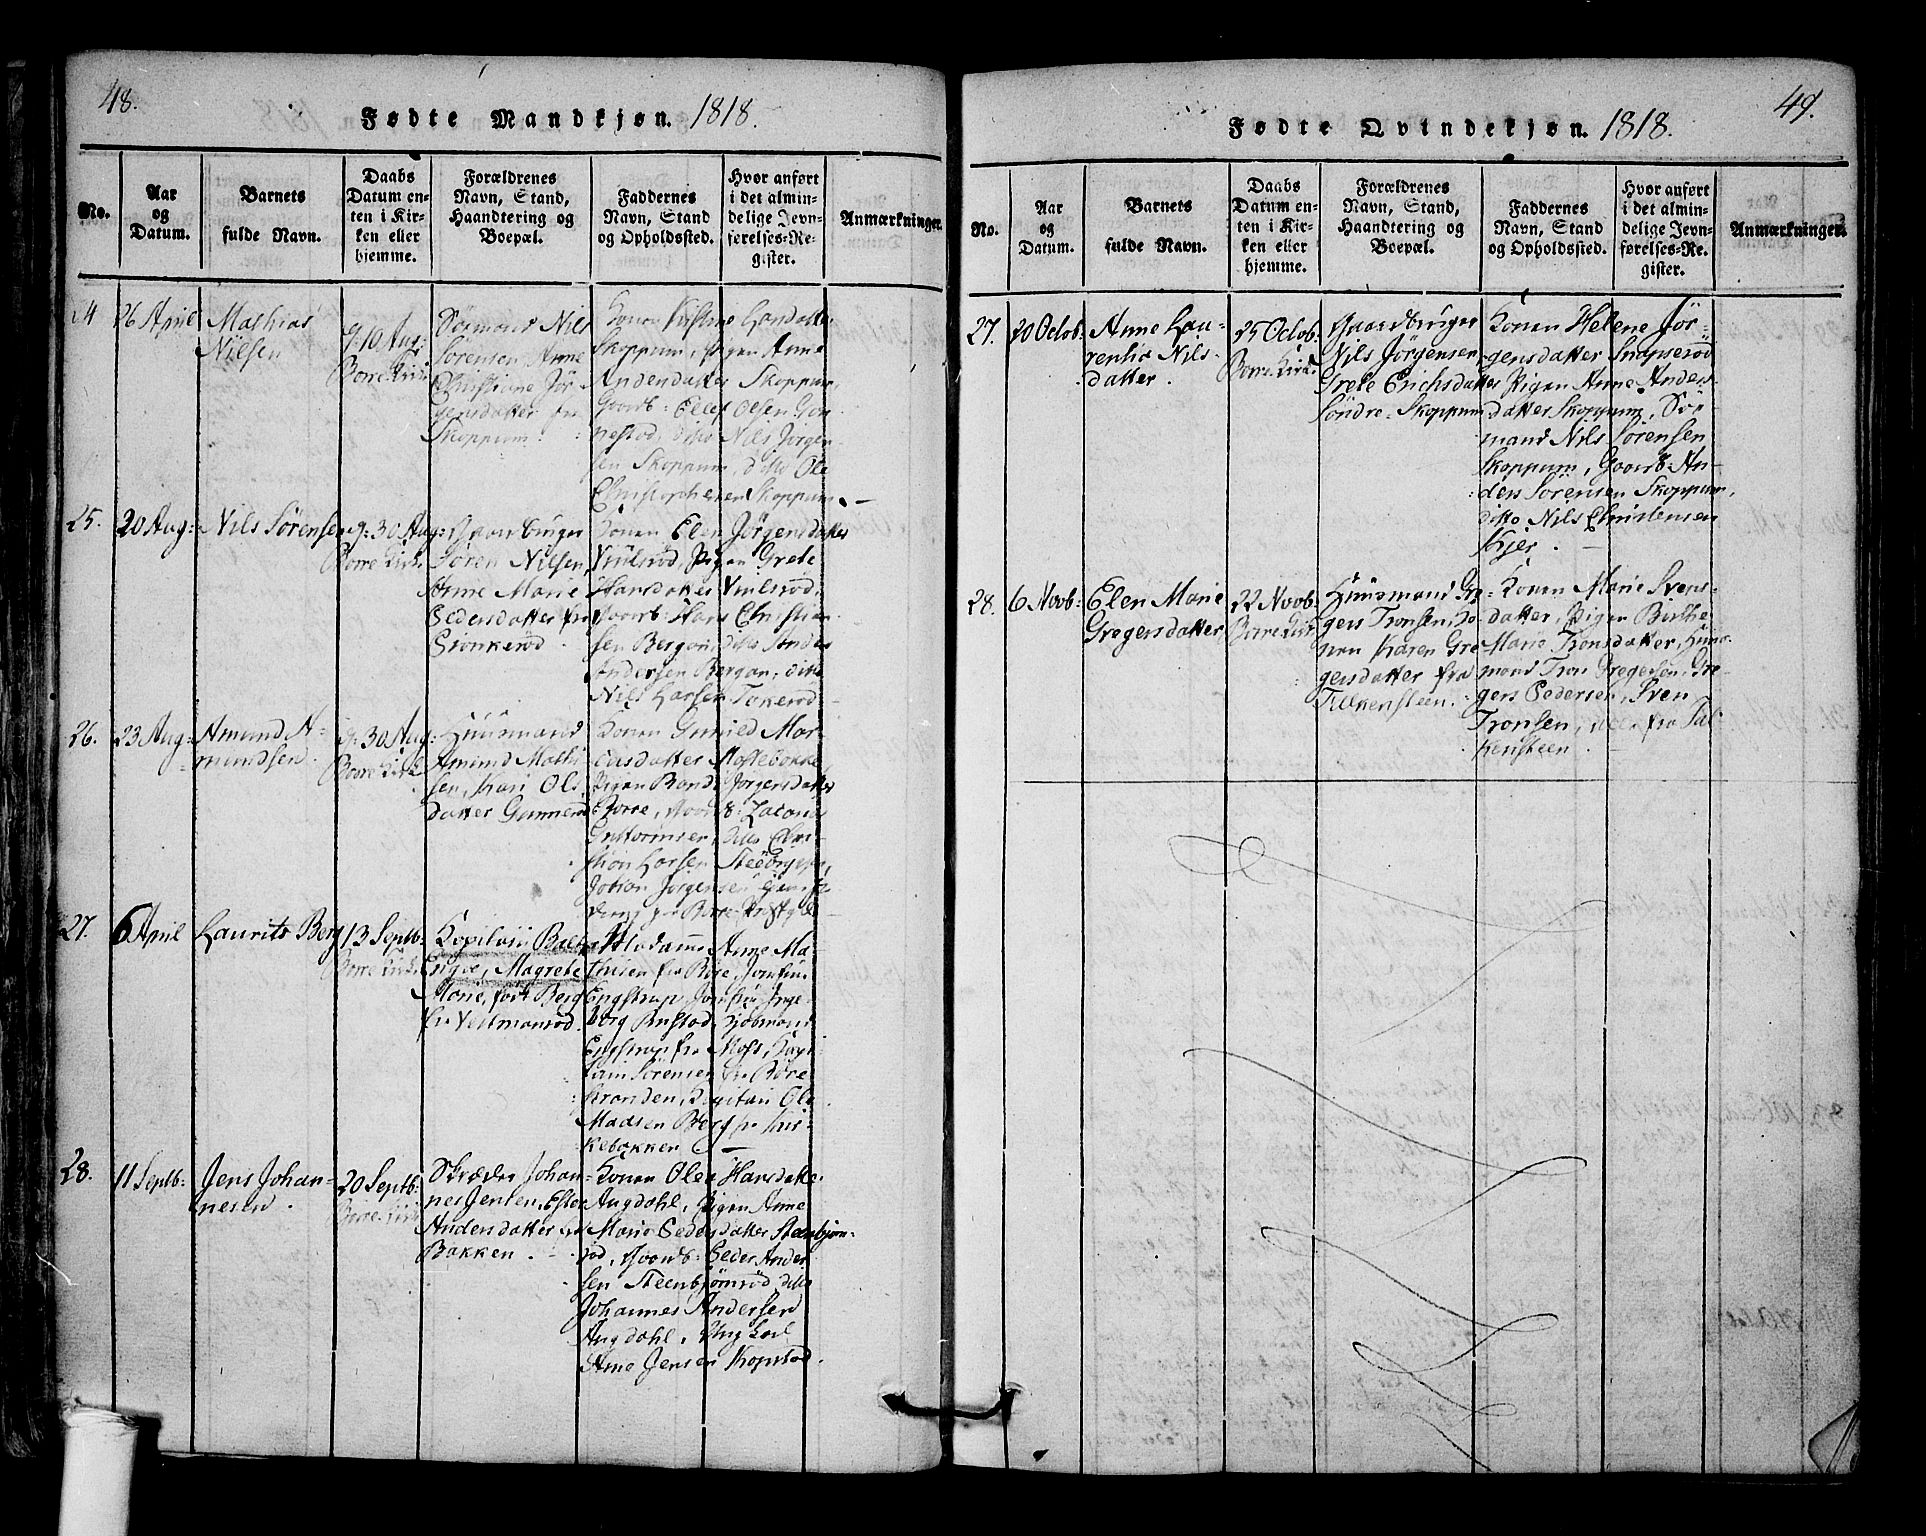 48.
Fødte Mandkjøn. 1818.
No.
Aar
og
Datum.
Barnets
fulde Navn.
Daabs
Datum en-
ten i Kir-
ken eller
hjemme.
Forældrenes
Navn, Stand,
Haandtering og
Boepæl.
Faddernes
Navn, Stand
og Opholdssted.
Hvor anført
i det almin-
delige Jevn-
førelses-Re-
gister.
Anmærkninger.
24
26 April
Mathias
Nilsen
10 Aug:
Borre Kirke
Sømand Nils
Sørensen Anne
Christiane Jør
gensdatter fra
Skoppum.
Konen
Skoppum, Pigen Anne
Andersdatter Skoppum,
Gaardb: Ellef Olsen Gon
nestad, ditto Nils Jörgen
sen Skoppum, ditto Ole
Christophersen Skoppum. —
25.
20 Aug:
Nils Sörensen
30 Aug:
Borre Kirke
Gaardbruger
Sören Nilsen,
Anne Marie
Pedersdatter fra
Konen Elen Jörgensdatter
Pigen Grete
Hansdatter
Gaardb: Hans Christian
sen Bergan, ditto Anders
Andersen Bergan, ditto
Nils Larsen
26.
23 Aug:
Amund A-
mundsen.
30 Aug:
Borre Kirke
Huusmand
Amund Mathi
sen, Kari Ols
datter
Konen Gunild Mar-
Pigen Jörgensdatter
Borre, Gaardb:
Guttormsen, ditto Chri-
stian Larsen
Jörgensen
27.
6 April
Laurits Berg
13 Septb:
Borre Kirke
Magrete
Marie, født Berg
Madamme Anne Ma-
thisen fra Borre, Jomfru
Engstrup, Jomfru Inge-
borg
Engstrup fra Moss, Kap
tain Sörensen fra Borre
stranden, Kapitain Ole
Madsen Berg fra Kir-
kebakken —
28.
11 Septb:
Jens Johan-
nesen.
20 Septb:
Borre Kirke
Skræder Johan-
nes Jensen, Ester
Andersdatter
Bakken.
Konen Olea Hansdatter
Augdahl, Pigen Anne
Marie Pedersdatter Steenbjørn-
rød, Gaardb: Peder Ander
sen Steenbjörnröd ditto
Johannes Andersen
Augdahl, Ung Karl
Arne Jensen Kopstad.
49.
Fødte Qvindekjøn. 1818.
No.
Aar
og
Datum.
Barnets
fulde Navn.
Daabs
Datum en-
ten i Kir-
ken eller
hjemme.
Forældrenes
Navn, Stand,
Haandtering og
Boepæl.
Faddernes
Navn, Stand
og Opholdssted.
Hvor anført
i det almin-
delige Jevn-
førelses-Re-
gister.
Anmærkninger.
27.
20 Octob:
Anne Lau-
rentia Nils-
datter.
25 Octob.
Borre Kirke
Gaardbruger
Nils Jörgensen
Grete Erichsdatter
Söndre-Skoppum
Konen Helene Jör-
gensdatter Snapseröd
Pigen Anne Anders-
datter Skoppum, Sör
mand Nils Sörensen
Skoppum, Gaardb: An-
ders Sörensen Skoppum,
ditto Nils Christensen
Kjer. —
28.
6 Novb:
Elen Marie
Gregersdatter
22 Novb:
Borre Kirke
Huusmand Gre-
gers Tronsen, Ko-
nen Karen Gre
gersdatter fra
Falkensteen.
Konen Marie Svens-
datter, Pigen Berthe
Marie Tronsdatter, Huus-
mand Tron Gregersen, Gre
gers Pedersen, Sven
Tronsen, alle fra Fal
kensteen. —